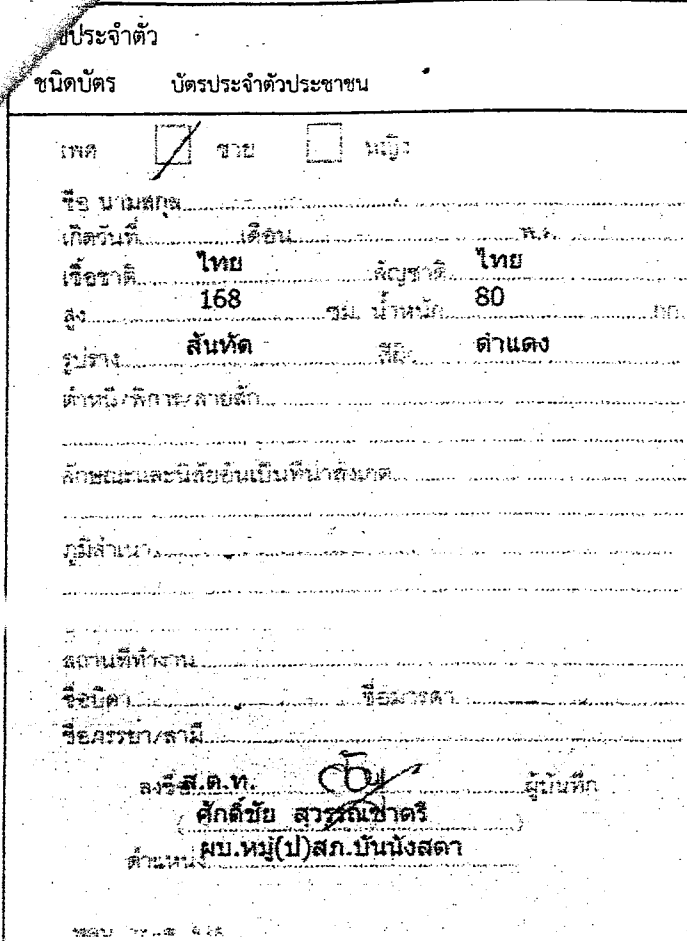 ประจำตัว
ชนิดบัตร บัตรประจำตัวประชาชน
เพศ ชาย หญิง
ชื่อ นามสกุล
เกิดวันที่ เดือน พ.ศ.
เชื้อชาติ ไทย สัญชาติ ไทย
สูง 168 ซม. น้ำหนัก 80 กก.
รูปร่าง สันทัด สีผิว ดำแดง
ตำหนิ/พิการ/ลายสัก
ลักษณะและนิสัยอันเป็นที่น่าสังเกต
ภูมิลำเนา
สถานที่ทำงาน
ชื่อบิดา ชื่อมารดา
ชื่อภรรยา/สามี
ลงชื่อ ส.ต.ท. ผู้บันทึก
( ศักดิ์ชัย สุวรรณชาตรี )
ตำแหน่ง ผบ.หมู่(ป)สภ.บันนังสตา